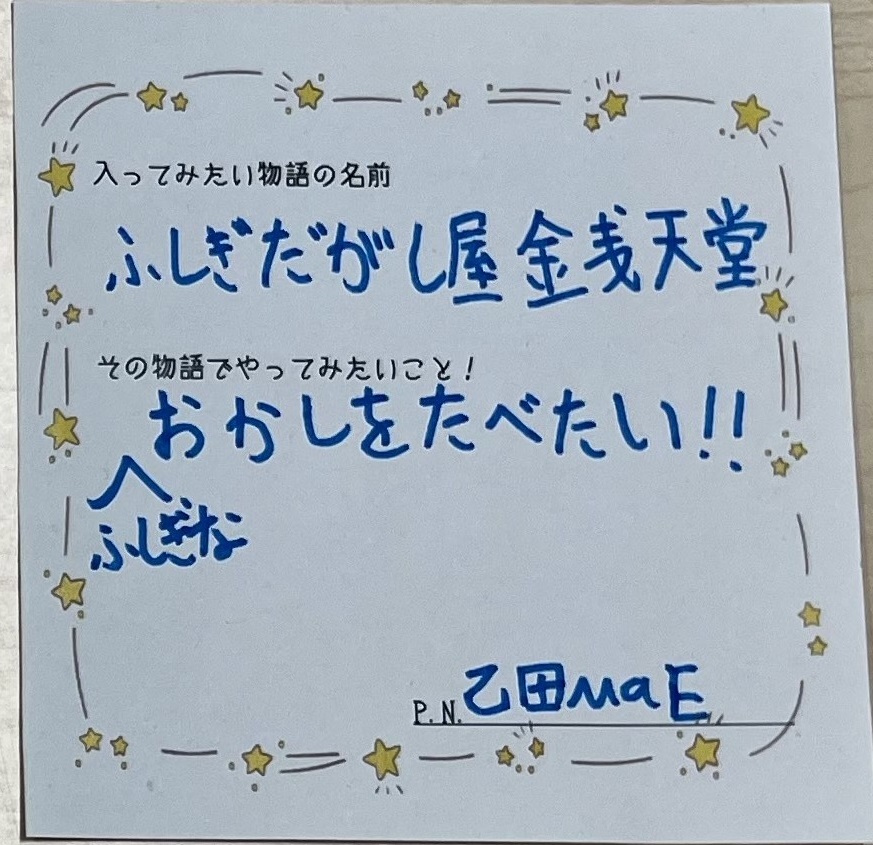 入ってみたい物語の名前
ふしぎだがし屋 金銭天堂
その物語でやってみたいこと！
おかしをたべたい!!
ふしぎな
P.N. 乙田MaE